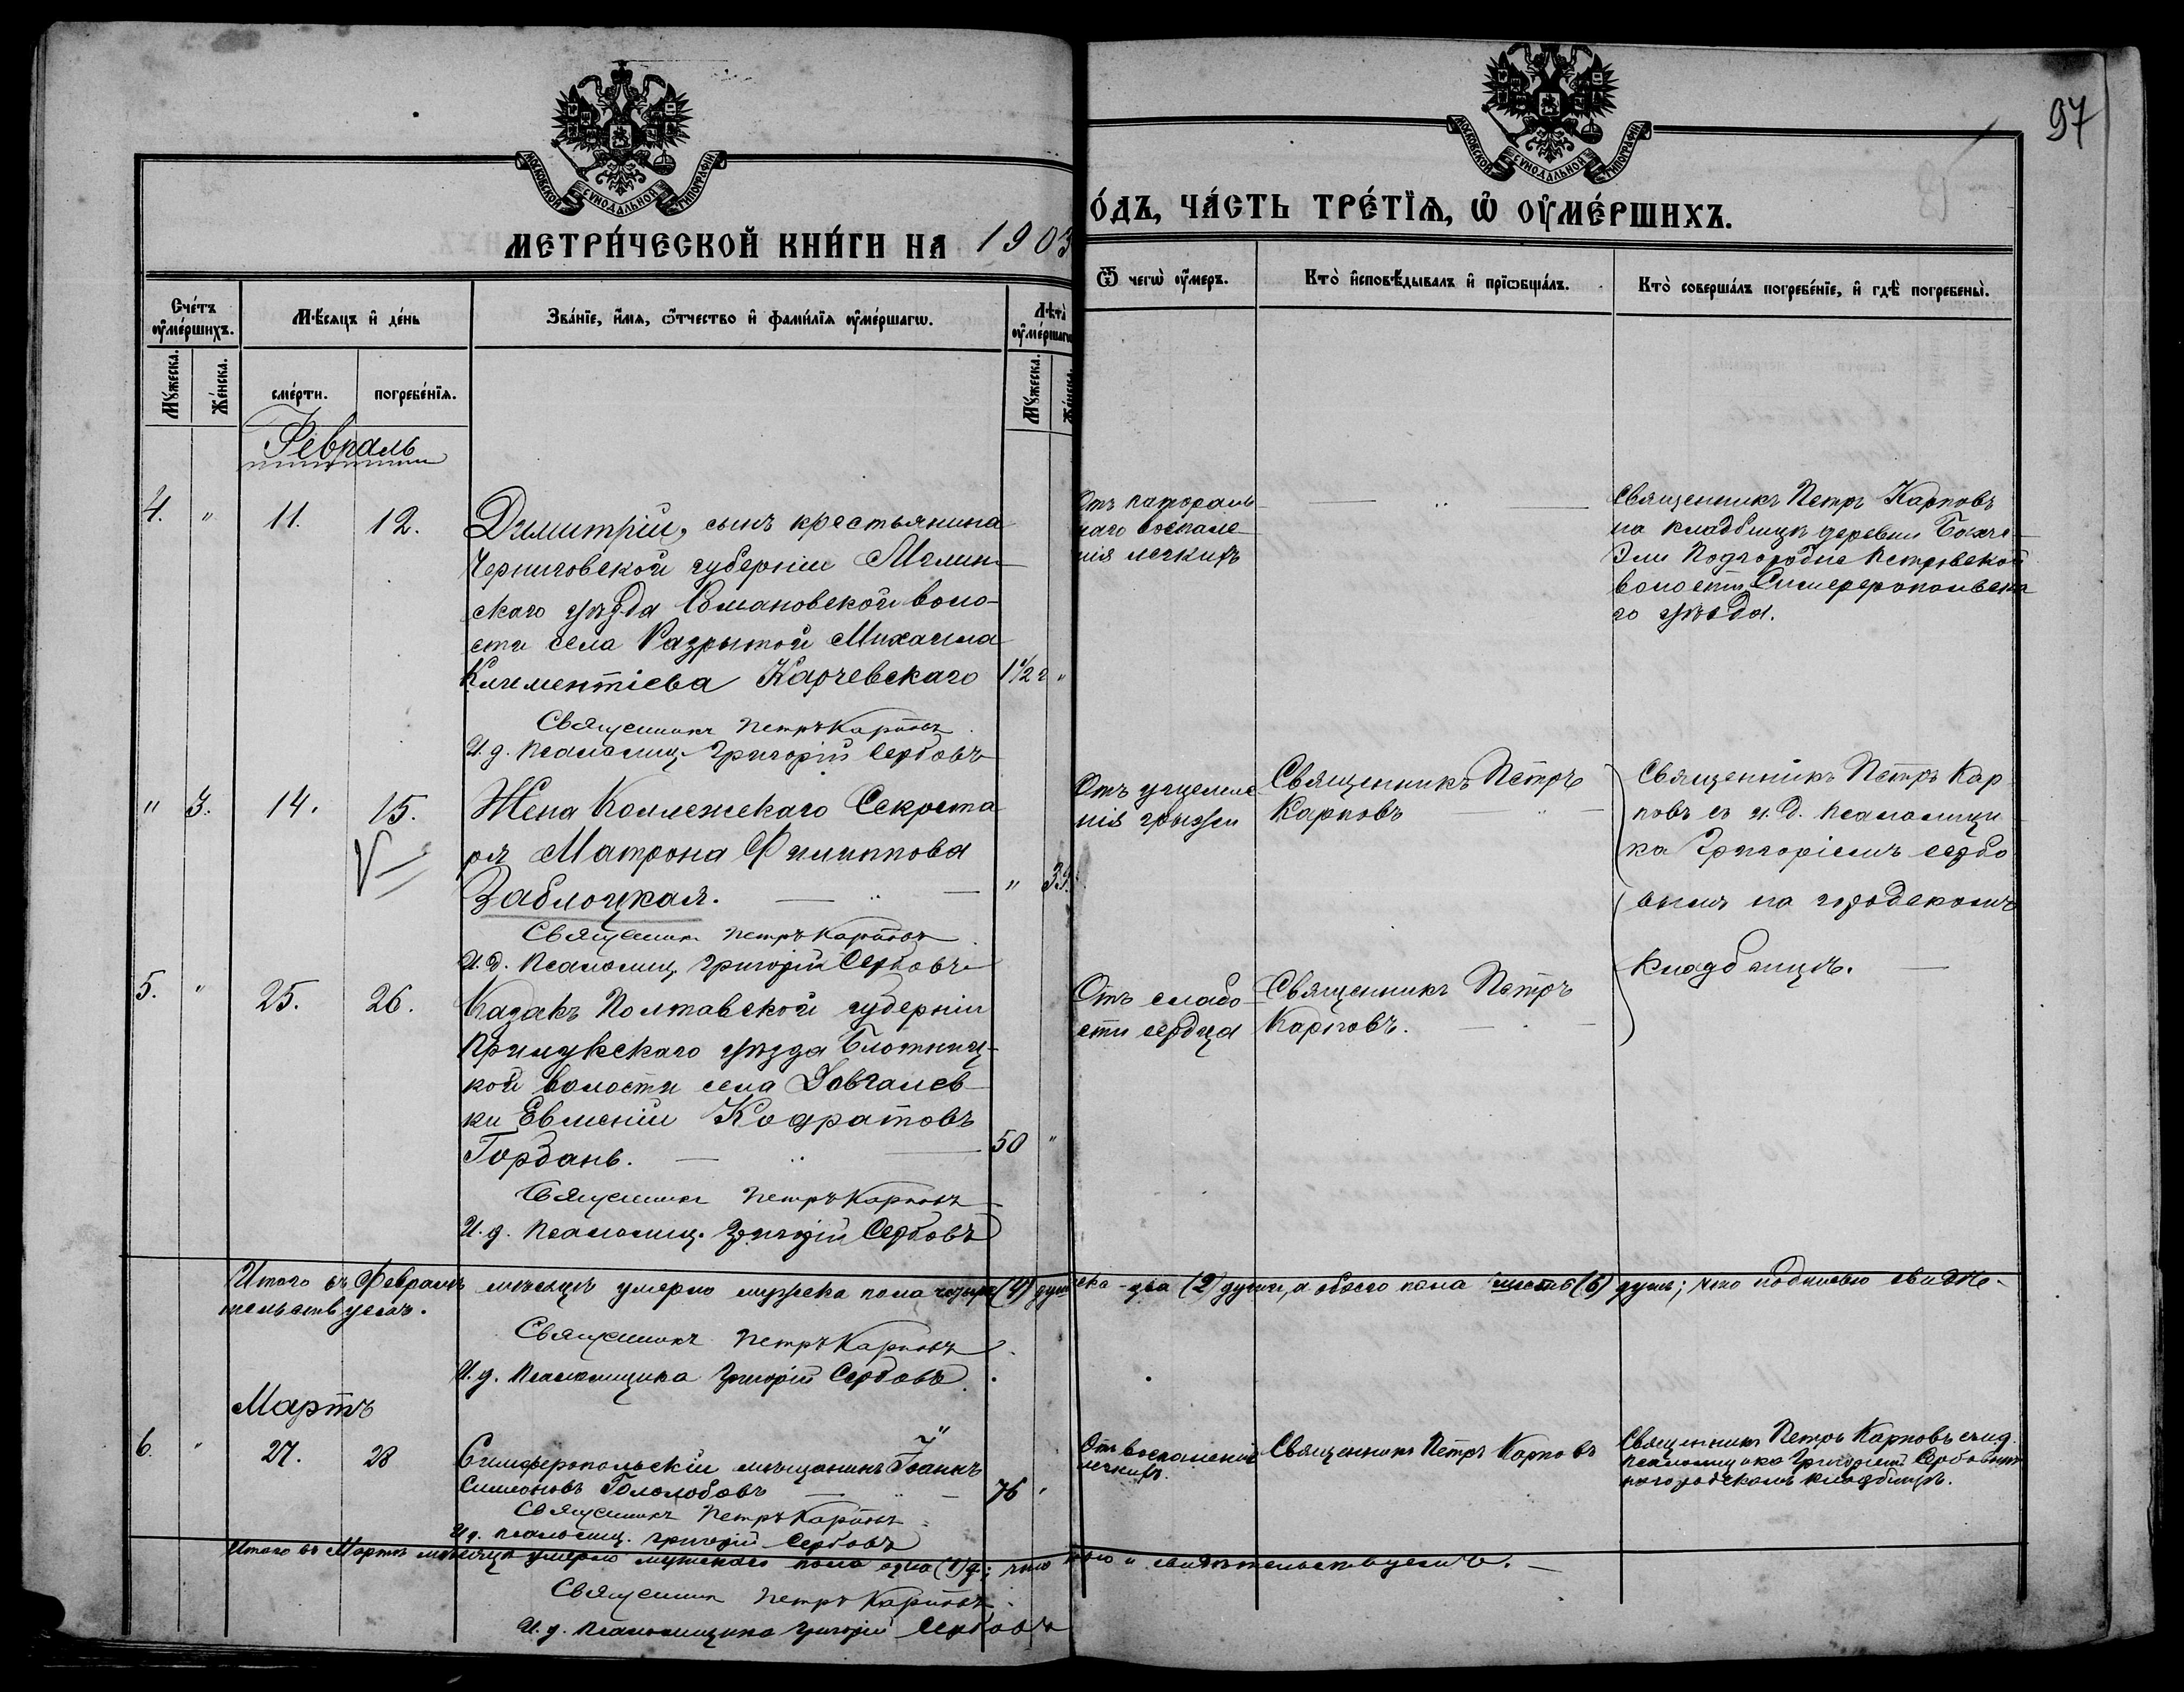 97
МОСКОВСКОЙ СѴНОДАЛЬНОЙ ТИПОГРАФІИ
МОСКОВСКОЙ СѴНОДАЛЬНОЙ ТИПОГРАФІИ
МЕТРИ́ЧЕСКОЙ КНИ́ГИ НА 1903
О́ДЪ, ЧА́СТЬ ТРЕ́ТЇѦ, Ѡ҆ ОУ҆МЕ́РШИХЪ.
Сче́тъ оу҆ме́ршихъ.
Мꙋ́жеска.
Же́нска.
Мѣ́сяцъ и҆ де́нь
сме́рти.
погребе́нїѧ.
Зва́нїе, и҆́мѧ, ѻ҆́тчество и҆ фами́лїѧ оу҆ме́ршагѡ.
Лѣ́та̀ оу҆ме́ршагѡ
Мꙋ́жеска.
Же́нска.
Ѿ чегѡ̀ оу҆́меръ.
Кто̀ и҆сповѣ́дывалъ и҆ прїѡбща́лъ.
Кто̀ соверша́лъ погребе́нїе, и҆ гдѣ̀ погребены̀.
Февраль
4. " 11. 12.
Димитрій, сынъ крестьянина
Черниговской губерніи Мглин-
скаго уѣзда Романовской воло-
сти села Разрытой Михаила
Климентіева Карчевскаго 1½ г "
Священникъ Петръ Карповъ
И. д. Псаломщ. Григорій Сербовъ
Отъ катораль
наго воспале-
нія легкихъ
Священникъ Петръ Карповъ
на кладбищѣ деревни Бахчи-
Эли Подгородне Петровской
волости Симферопольска
го уѣзда.
" 3. 14. 15.
Жена Коллежскаго Секрета
ря Матрона Филиппова
Заблоцкая. " 39.
Священникъ Петръ Карповъ
И. д. Псаломщ. Григорій Сербовъ
Отъ ущемле
нія грыжи
Священникъ Петръ
Карповъ
Священникъ Петръ Кар
повъ съ и. д. псаломщи
ка Григоріемъ Сербо
вымъ на городскомъ
кладбищѣ.
5. " 25. 26.
Казакъ Полтавской губерніи
Прилукскаго уѣзда Блотниц-
кой волости села Довгалев-
ки Евменій Кодратовъ
Гордань. 50 "
Священникъ Петръ Карповъ
И. д. Псаломщ. Григорій Сербовъ
Отъ слабо
сти сердца
Священникъ Петръ
Карповъ.
Итого въ Февралѣ мѣсяцѣ умерло мужска пола четыре (4) душ ска - два (2) души, а обоего пола шесть (6) душъ; что подписью свидѣ-
тельствуемъ.
Священникъ Петръ Карповъ
И. д. Псаломщика Григорій Сербовъ
Мартъ
6. " 27. 28
Симферопольскій мѣщанинъ Іоаннъ
Симеоновъ Гололобовъ 76 "
Священникъ Петръ Карповъ
И д. псаломщ. Григорій Сербовъ
Отъ воспаленія
легкихъ.
Священникъ Петръ Карповъ
Священникъ Петръ Карповъ съ и д.
псаломщика Григоріемъ Сербовымъ
на городскомъ кладбищѣ.
Итого въ Мартѣ мѣсяцѣ умерло мужскаго пола одна (1) д; что и свидѣтельствуемъ.
Священникъ Петръ Карповъ
И. д. псаломщика Григорій Сербовъ